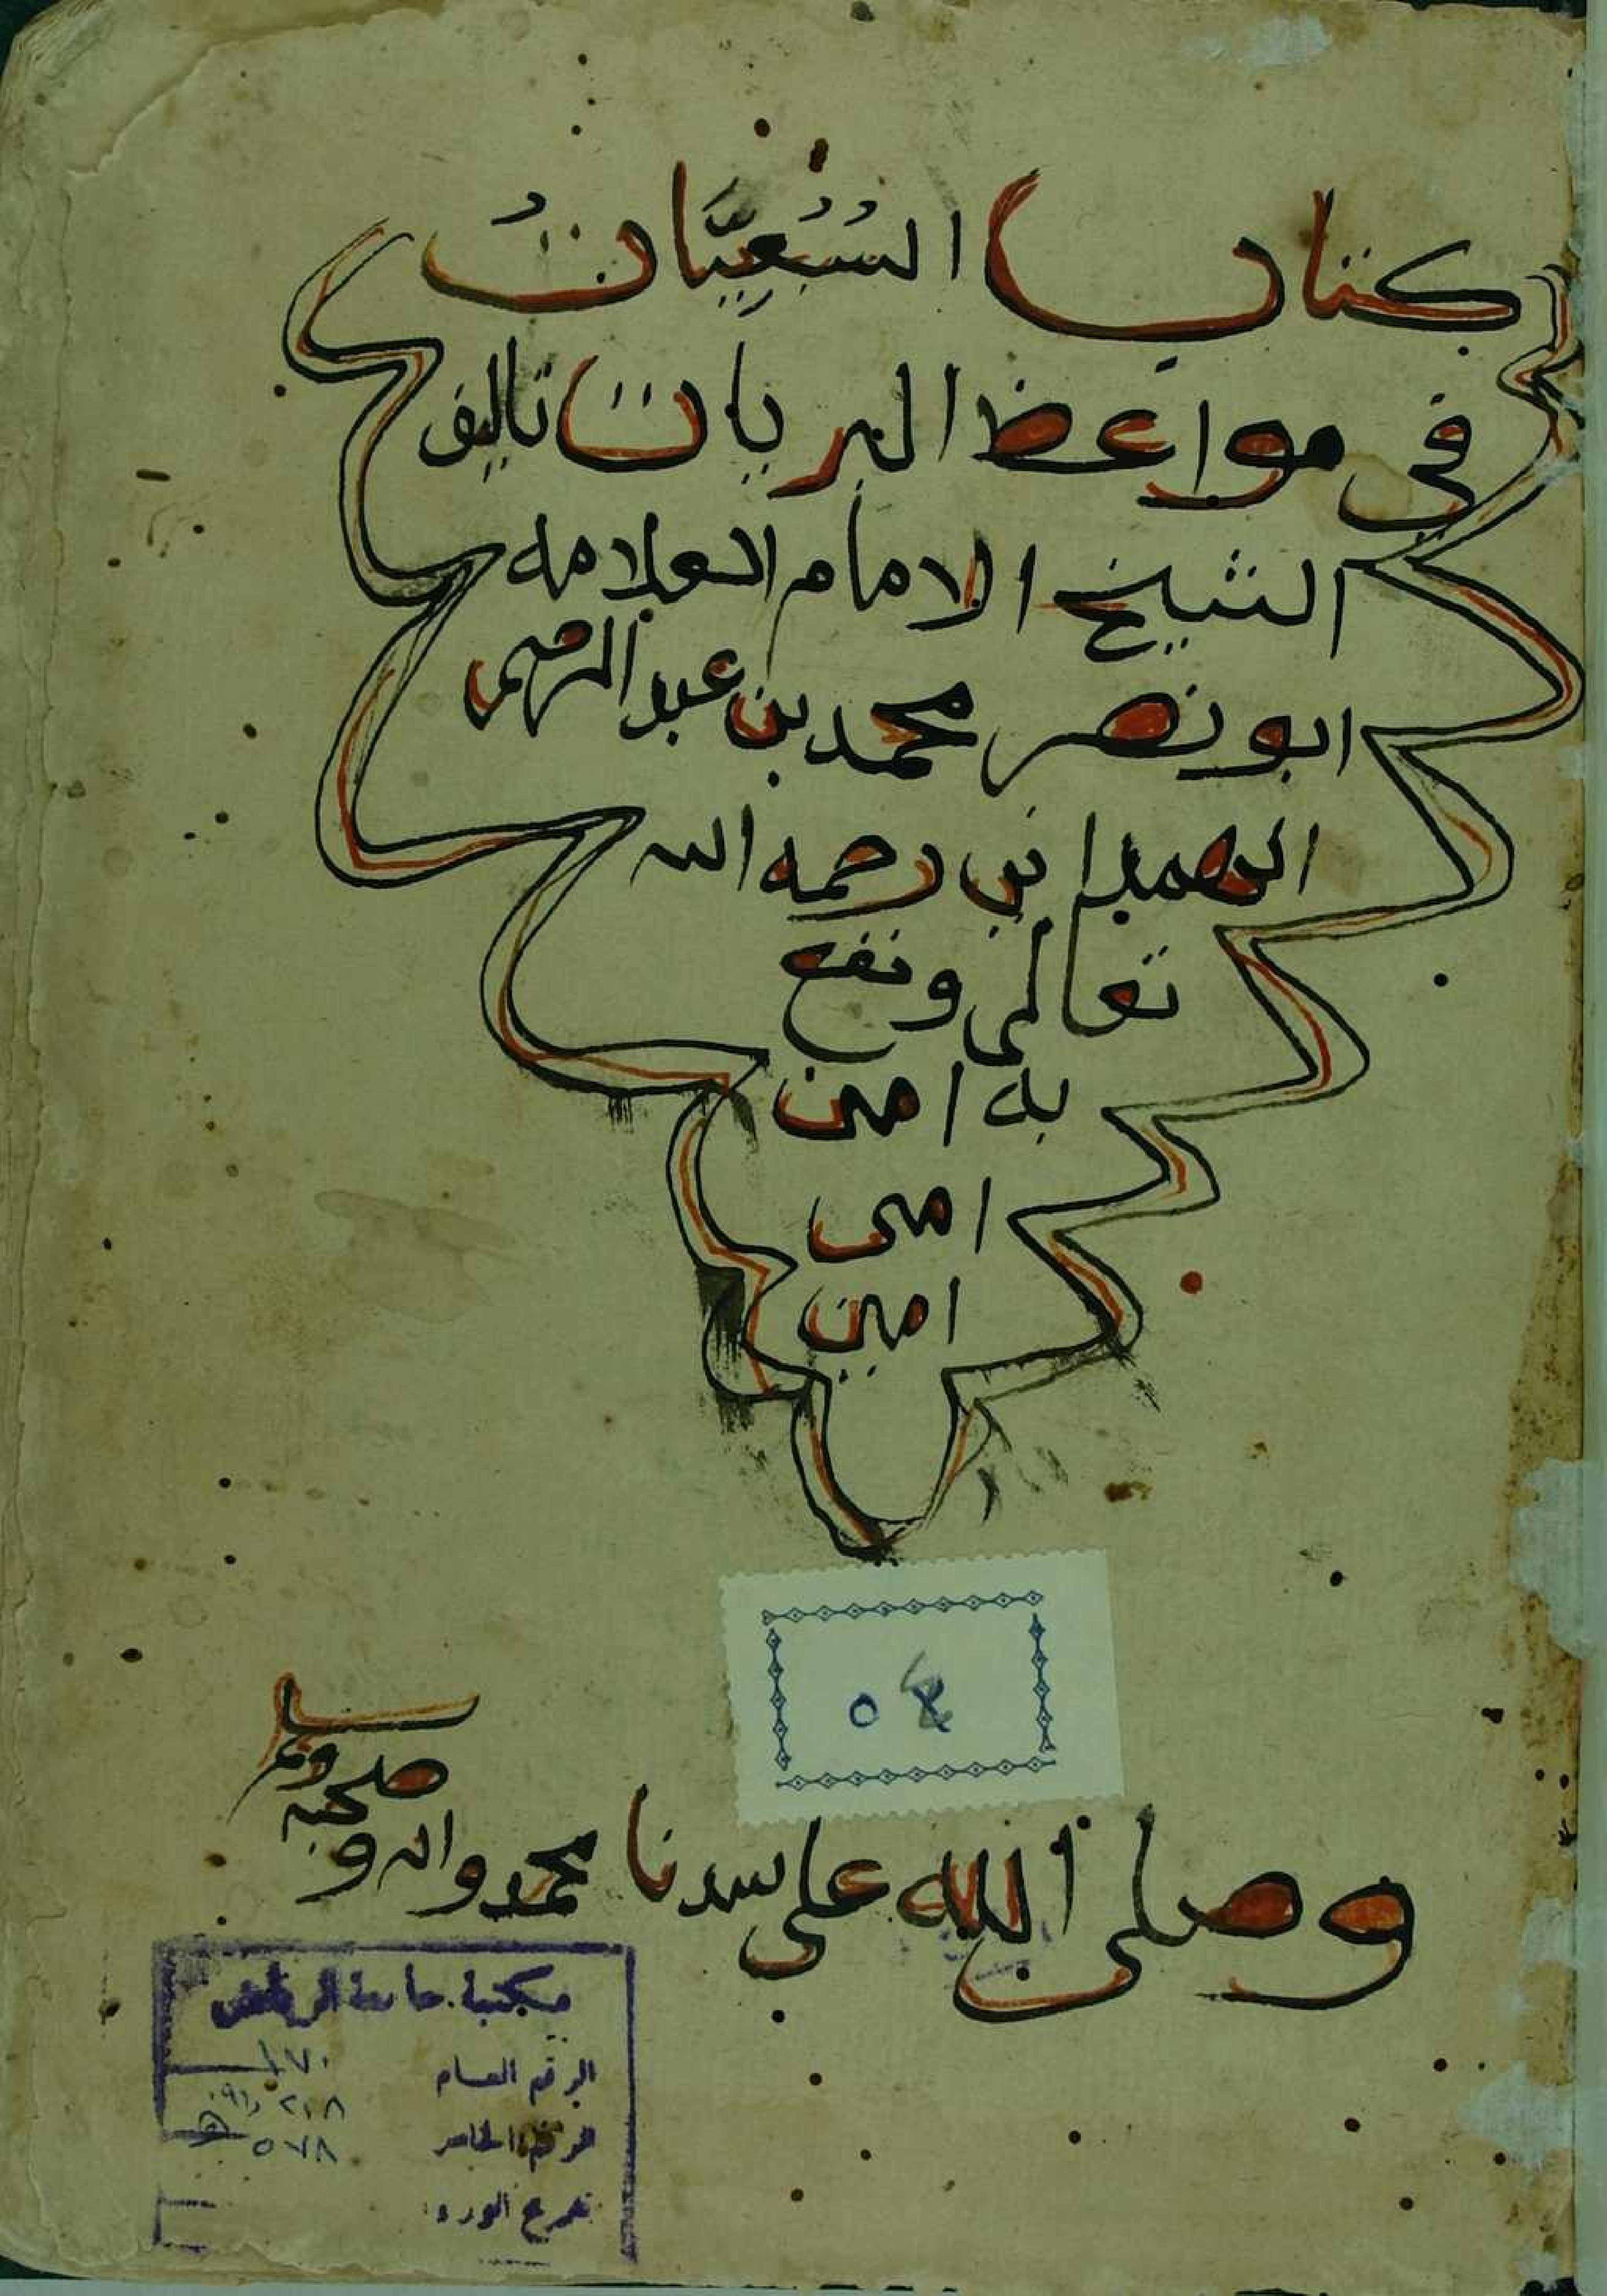 كتاب السُّبْعِيَّات
في مواعظ البريات تاليف
الشيخ الامام العلامه
ابو نصر محمد بن عبد الرحمن
الهمداني رحمه الله
تعالى ونفع
به امين
امين
امين
وصلى الله على سيدنا محمد واله و
صحبه وسلم
مكتبة جامعة الرياض
الرقم العام ١٧٠
الرقم الخاص
٢١٨
٥٧٨